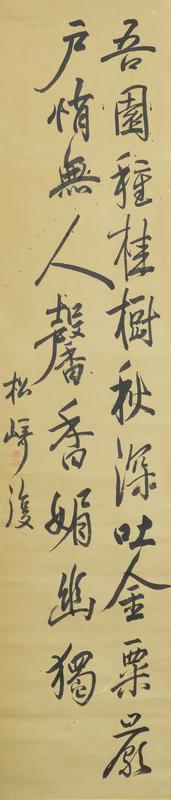 吾園種桂樹秋深吐金粟巖
戸悄無人馨香媚幽獨
松崎復